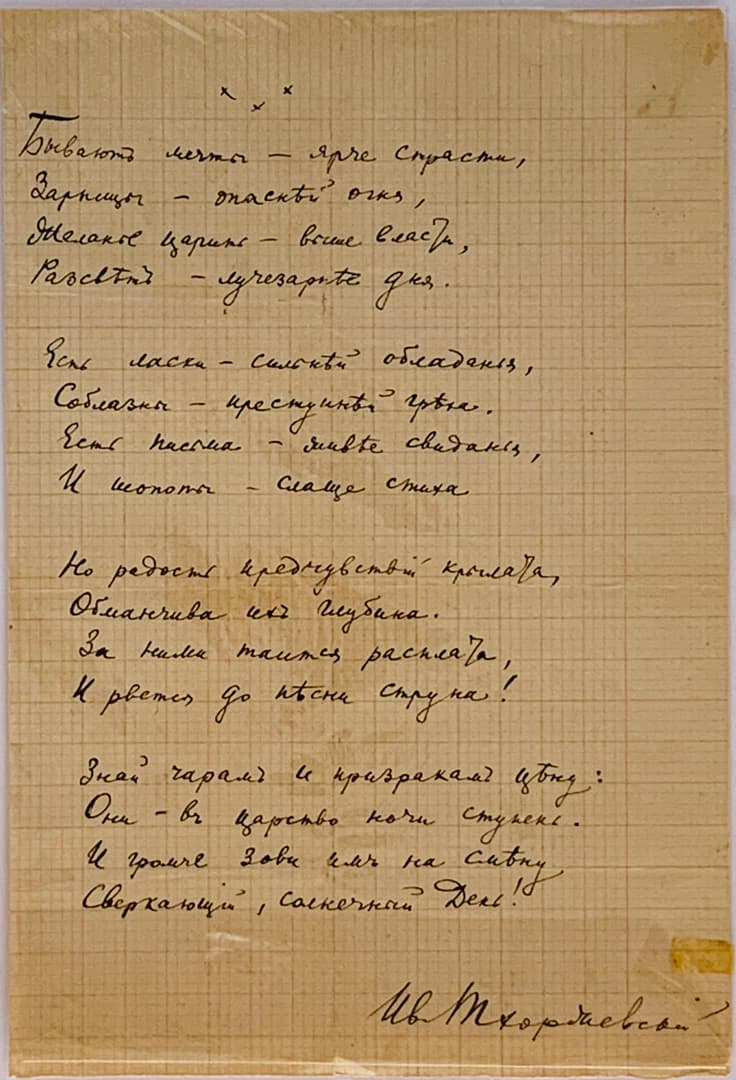 × × ×
Бываютъ мечты – ярче страсти,
Зарницы – опаснѣй огня,
Желанье царить – выше власти,
Разсвѣтъ – лучезарнѣе дня.
Есть ласки – сильнѣй обладанья,
Соблазны – преступнѣй грѣха.
Есть письма – живѣе свиданья,
И шопоты – слаще стиха
Но радость предчувствій крылата,
Обманчива ихъ глубина.
За ними таится расплата,
И рвется до пѣсни струна!
Знай чарамъ и призракамъ цѣну:
Они – въ царство ночи ступень.
И громче зови имъ на смѣну
Сверкающій, солнечный День!
Ив. Тхоржевскій